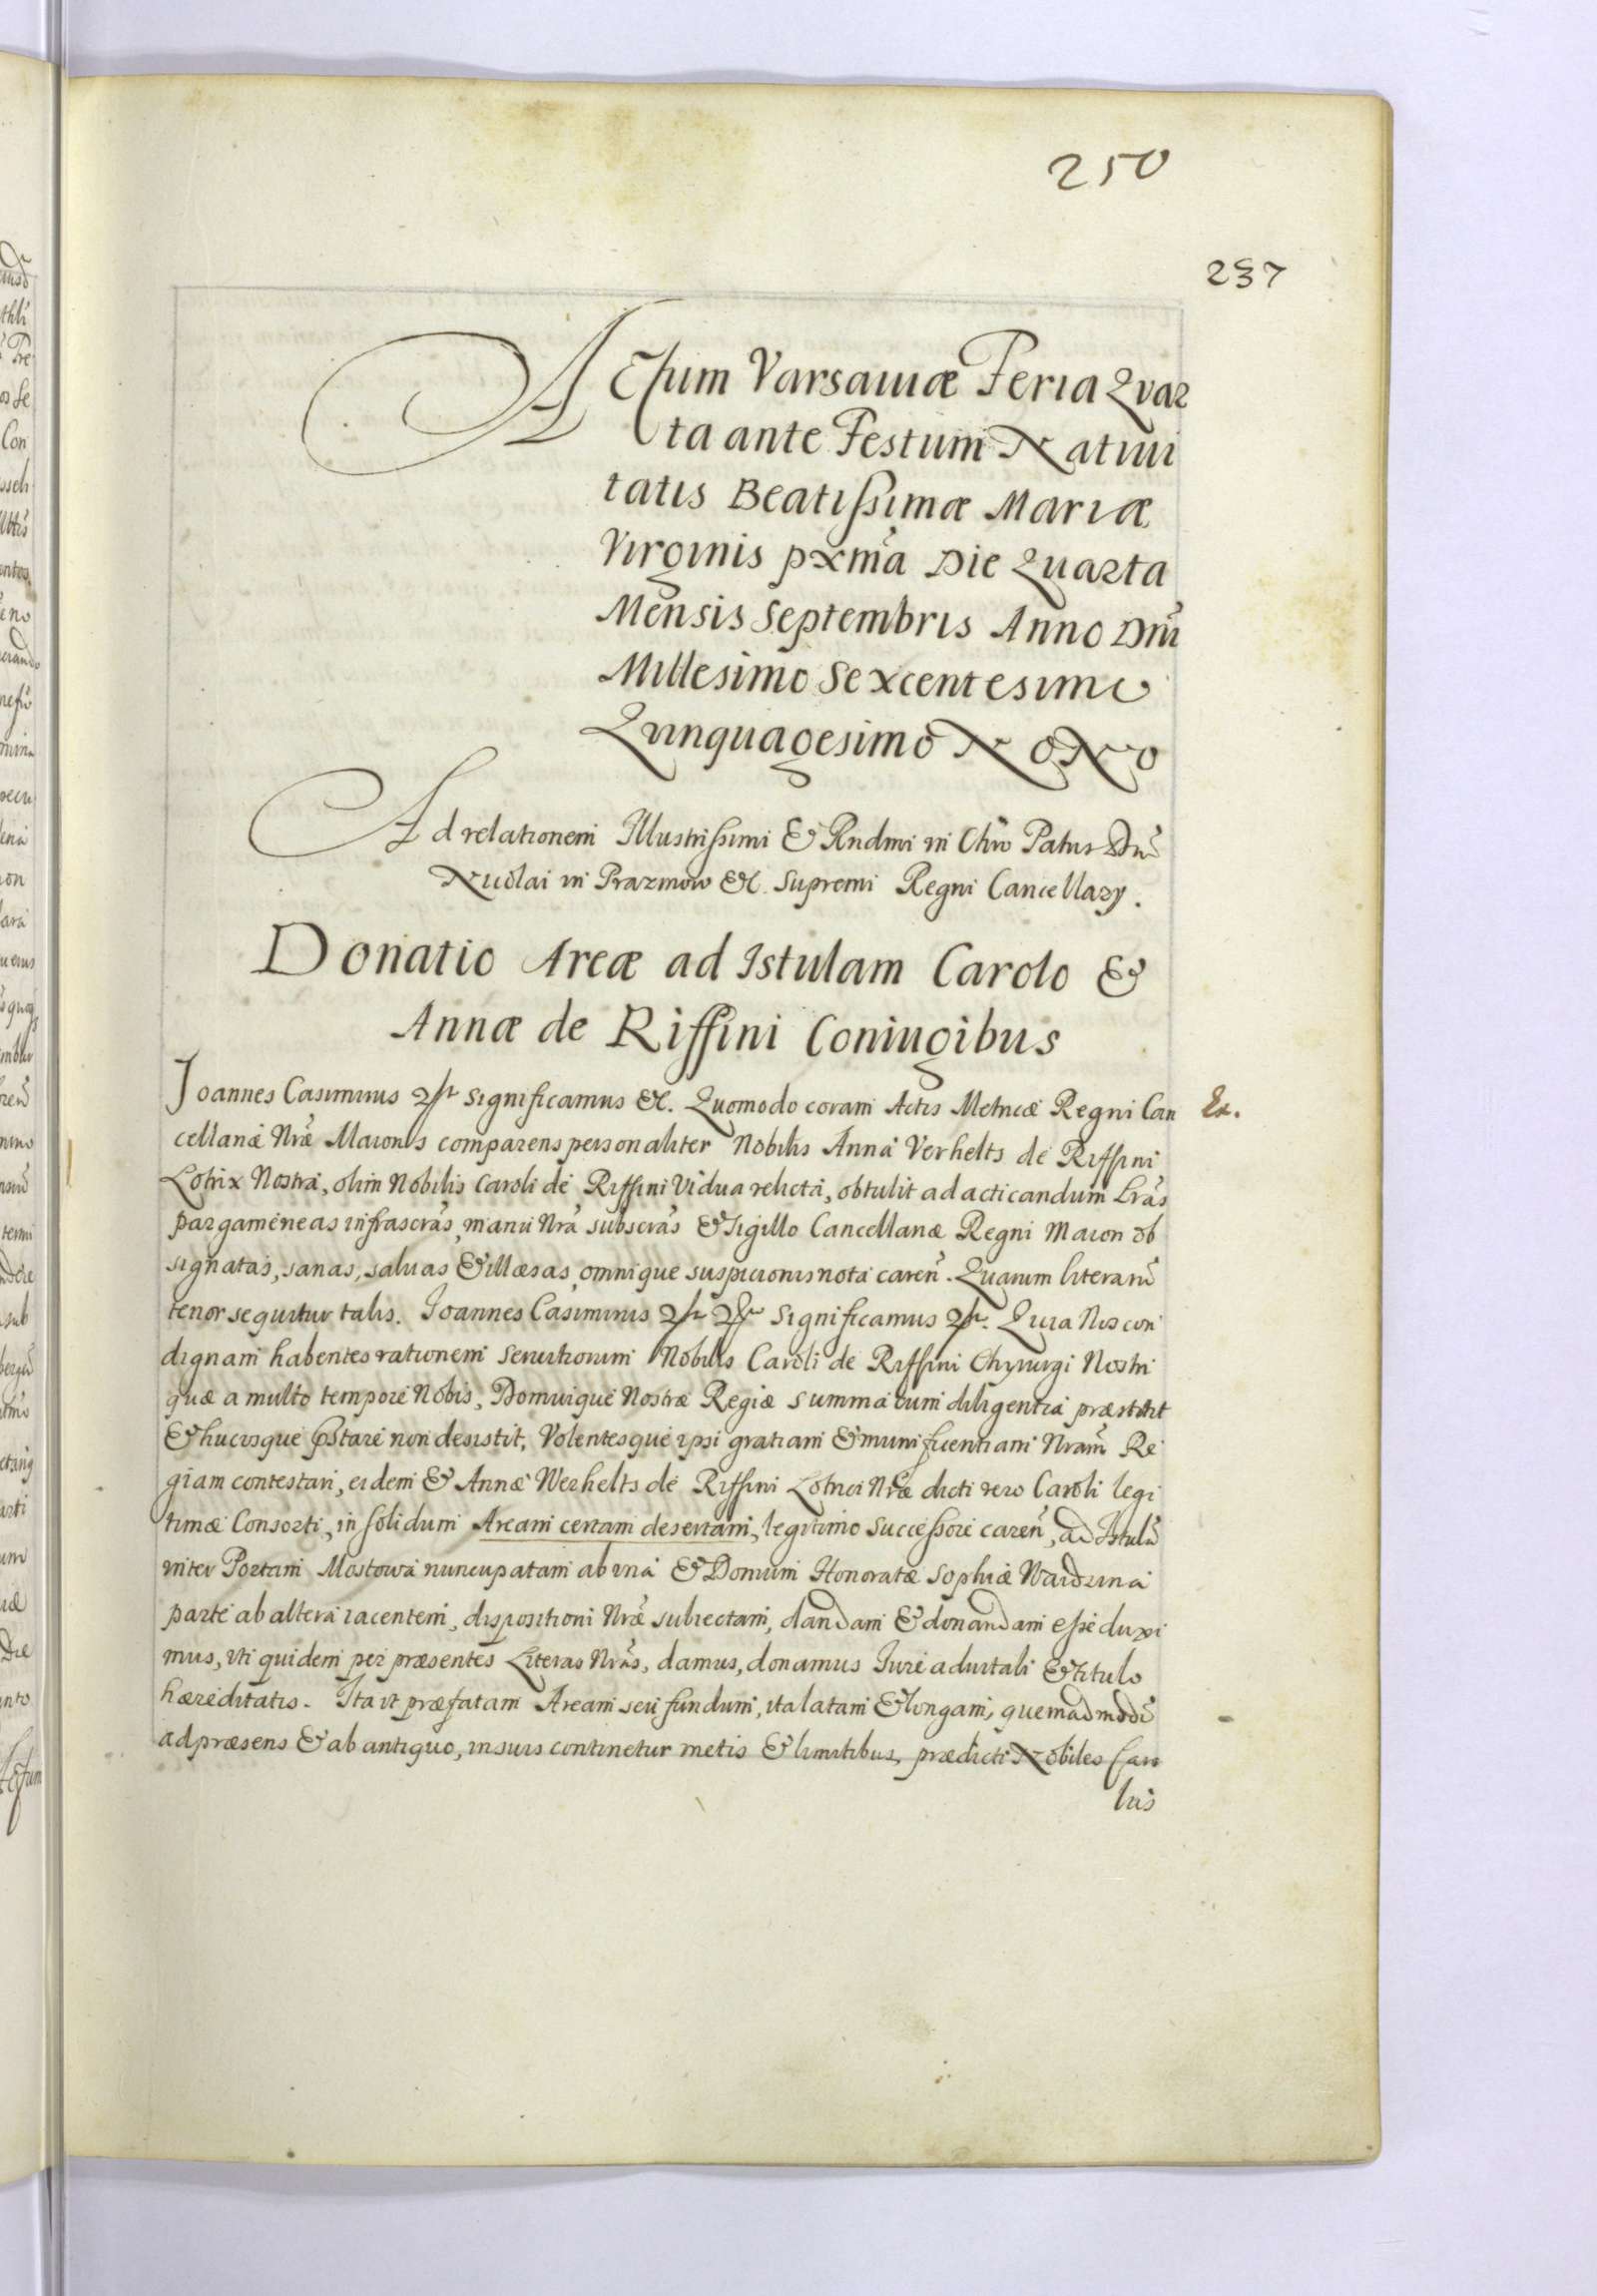 250
237
ACtum Varsauiæ Feria Quar
ta ante Festum Natiui
tatis Beatissimæ Mariæ
Virginis pxmã Die Quarta
Mensis Septembris Anno Dnĩ
Millesimo Sexcentesimo
Quinquagesimo Nono
Ad relationem Illustrissimi & Rndmi in Chro Patris Dnĩ
Nicolai in Prazmow &c. Supremi Regni Cancellarij.
Donatio Areæ ad Istulam Carolo &
Annæ de Riffini Coniugibus
Joannes Casimirus etc Significamus &c. Quomodo coram Actis Metricæ Regni Can
Ex.
cellariæ Nræ Maioris comparens personaliter Nobilis Anna Verhelts de Riffini
Lotrix Nostra, olim Nobilis Caroli de Riffini Vidua relicta, obtulit ad acticandum Lrãs
pargameneas infrascrãs, manu Nrã subscrãs & Sigillo Cancellariæ Regni Maior ob
signatas, sanas, saluas & illæsas, omnique suspicionis nota careñ. Quarum literarũ
tenor sequitur talis. Joannes Casimirus etc etc Significamus etc. Quia Nos con
dignam habentes rationem seruitiorum Nobilis Caroli de Riffini Chyrurgi Nostri
quæ a multo tempore Nobis, Domuique Nostræ Regiæ summa cum diligentia præstitit
& hucusque pstare non desistit, Volentesque ipsi gratiam & munificentiam Nram Re
giam contestari, eidem & Annæ Werhelts de Riffini Lotrici Nræ dicti vero Caroli legi
timæ Consorti, in solidum Aream certam desertam, legitimo successore careñ, ad Istulã
inter Portam Mostowa nuncupatam ab vna & Domum Honoratæ Sophiæ Waidzina
parte ab altera iacentem, dispositioni Nræ subiectam, dandam & donandam esse duxi
mus, vti quidem per præsentes Literas Nrãs, damus, donamus Jure aduitali & titulo
hæreditatis. Ita vt præfatam Aream seu fundum, ita latam & longam, quemadmodũ
ad præsens & ab antiquo, in suis continetur metis & limitibus, prædicti Nobiles Caro
lus